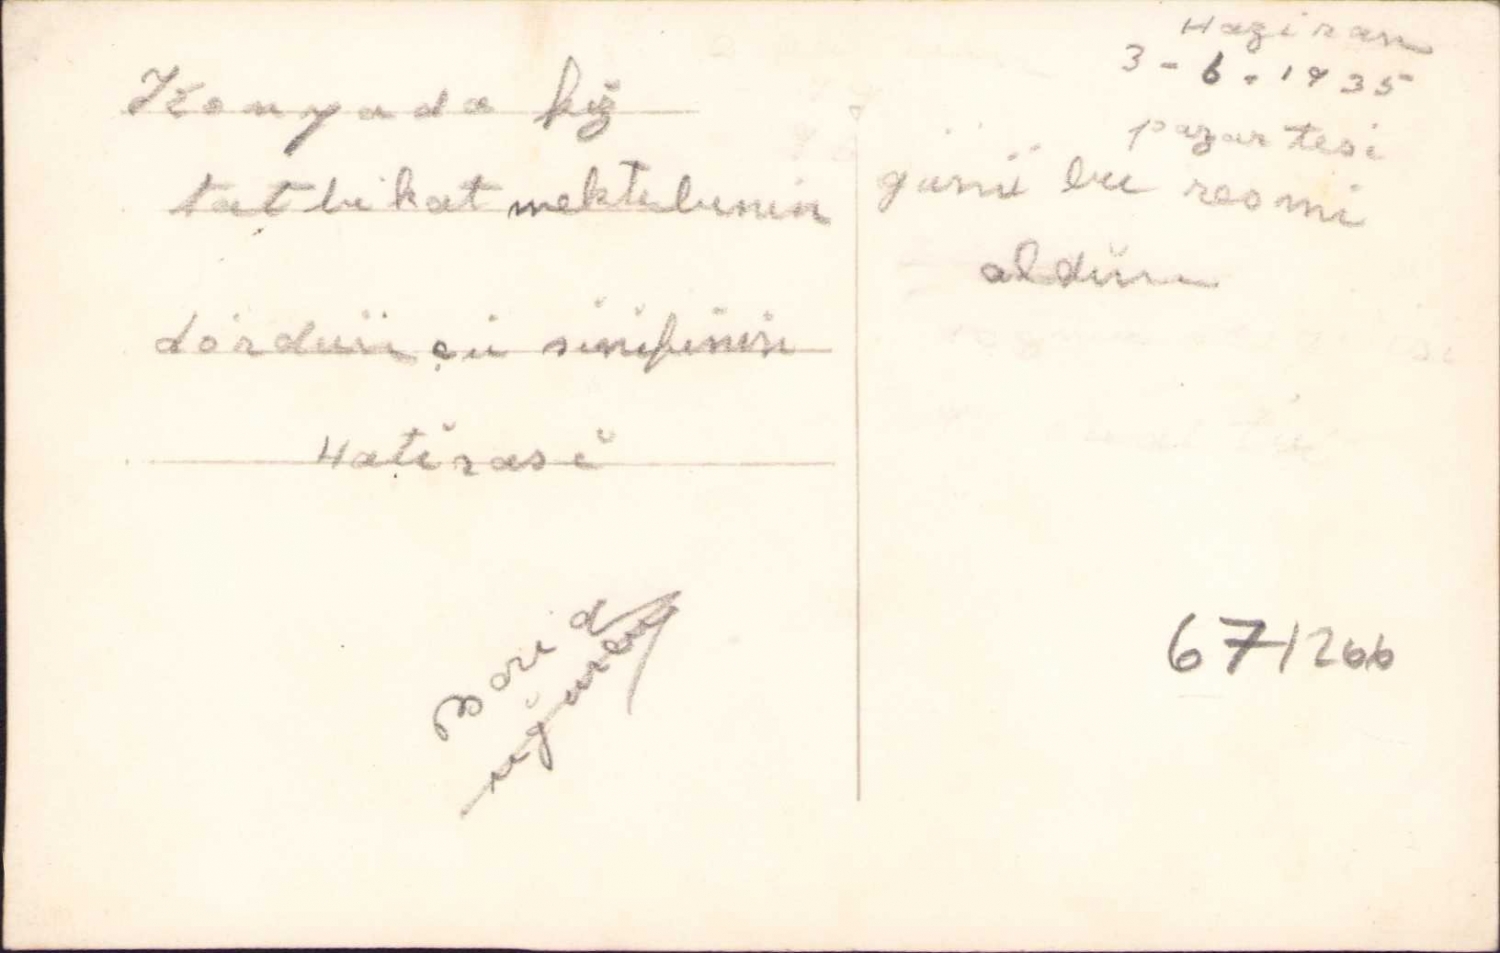 Konyada kız
tatbikat mektebinin
dördüncü sınıfının
Hatırası
Haziran
3-6-1935
pazartesi
günü bu resmi
aldım
67/1266